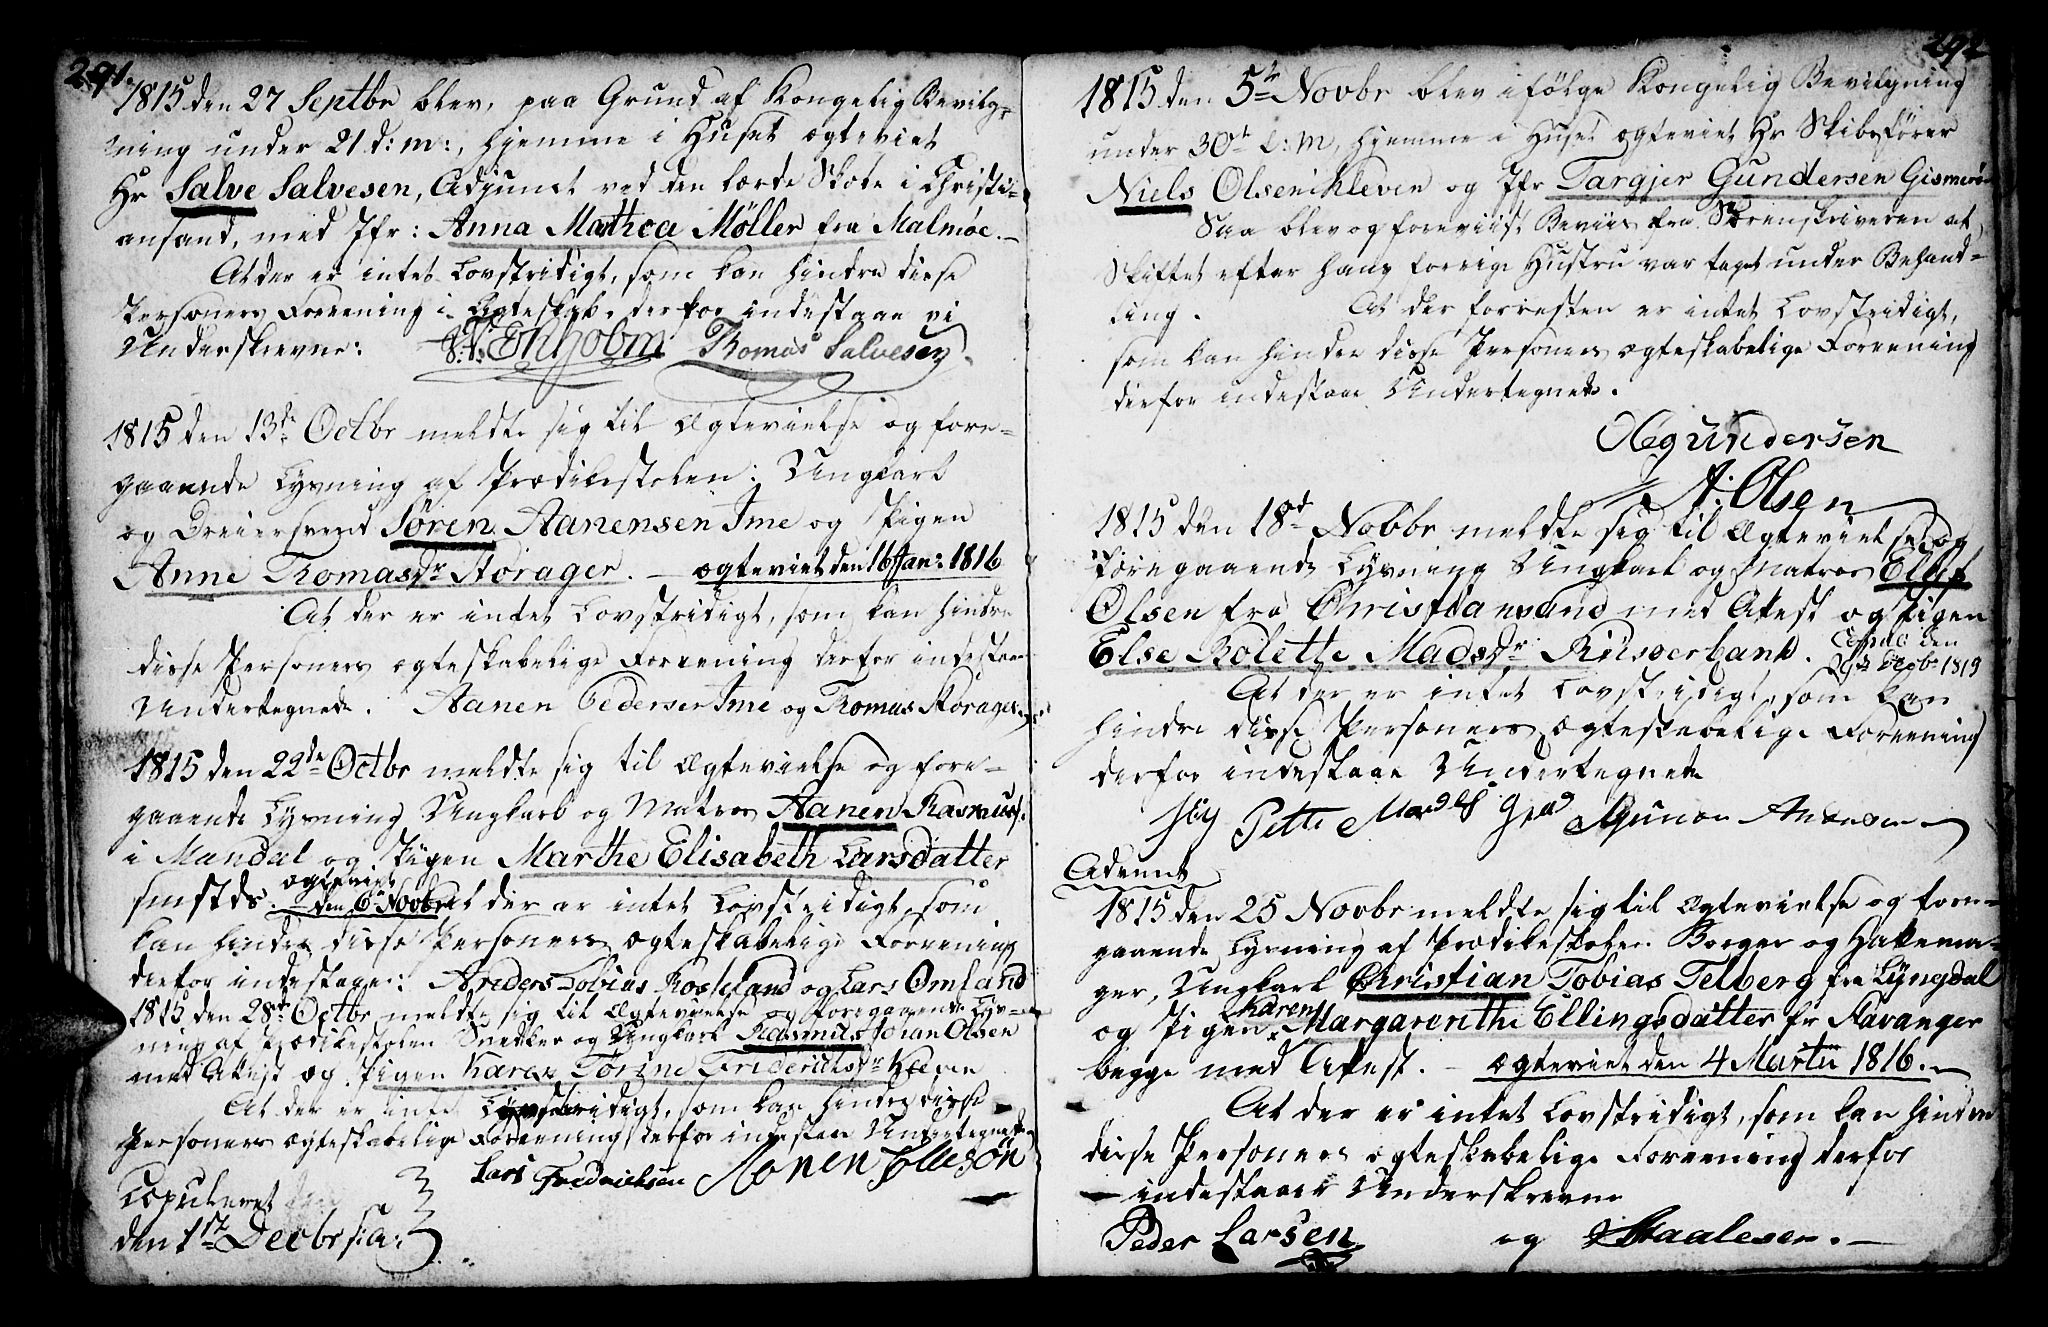 291.
1815 den 27 Septbr blev, paa Grund af Kongelig Bevilg-
ning under 21 d: m:, hjemme i Huset ægteviet
Hr Salve Salvesen, Adjunct ved den lærde Skole i Christi-
ansand, med Jfr: Anna Mathea Møller fra Malmøe.-
At der er intet Lovstridigt, som kan hindre disse
Personers Foreening i Ægteskab, derfor indestaae vi
Underskrevne: Thomas Salvesen
1815 den 13de Octbr meldte sig til Ægtevielse og fore-
gaaende Lysning af Prædikestolen: Ungkarl
og Dreiersvend Søren Aanensen Ime og Pigen
Anne Thomasdr Storager. - ægteviet den 16 Jan: 1816
At der er intet Lovstridigt, som kan hindre
disse Personers ægteskabelige Foreening derfor indestaae
Undertegnede. Aanen Pedersen Ime og Thomas Storager
1815 den 22de Octbr meldte sig til Ægtevielse og fore-
gaaende Lysning Ungkarl og Matros Aanen Rasmuss:
i Mandal og Pigen Marthe Elisabeth Larsdatter
smstds. ægteviet den 6 Novbr At der er intet Lovstridigt, som
kan hindre disse Personers ægteskabelige Foreening
derfor indestaae: Anders Tobias Roskland og Lars Omland
1815 den 28de Octbr meldte sig til Ægtevielse og foregaaende Lys-
ning af Prædikestolen Snedker og Ungkarl Rasmus Johan Olsen
med Attest og Pigen Karen Torine Friderichsdr Kleven
At der er intet Lovstridigt, som kan hindre disse
Personers ægteskabelige Foreening derfor indestaae Undertegnede
Lars Fredrichsen
Copuleret
den 1ste Decbr s: a:
292
1815 den 5te Novbr blev ifølge Kongelig Bevilgning
under 30te f: M, hjemme i Huset ægteviet Hr Skibsfører
Niels Olsen Kleven og Jfr Targjer Gundersen Gismerøe
Saa blev og foreviist Beviis fra Sorenskriveren at
Skiftet efter hans forrige Hustru var taget under Behand-
ling. At der forresten er intet Lovstridigt,
som kan hindre disse Personers ægteskabelige Foreening
derfor indestaae Undertegnede.
Ole Gundersen
A: Olsen
1815 den 18de Novbr meldte sig til Ægtevielse og
foregaaende Lysning Ungkarl og Matros Eluf
Olsen fra Christiansand med Attest og Pigen
Else Bolette Madsdr Riisøerbank. Copulé den
29de Decbr 1815
At der er intet Lovstridigt, som kan
hindre disse Personers ægteskabelige Foreening
derfor indestaae Undertegnede
Advent
1815 den 25 Novbr meldte sig til Ægtevielse og fore-
gaaende Lysning af Prædikestolen Borger og Hattema-
ger, Ungkarl Christian Tobias Telberg fra Lyngdal
og Pigen Karen Margarenthe Ellingsdatter fr Stavanger
begge med Attest. - ægteviet den 4 Martii 1816.-
At der er intet Lovstridigt, som kan hindre
disse Personers ægteskabelige Foreening derfor
indestaaer Underskrevne
Peder Larsen og Staalesen.-